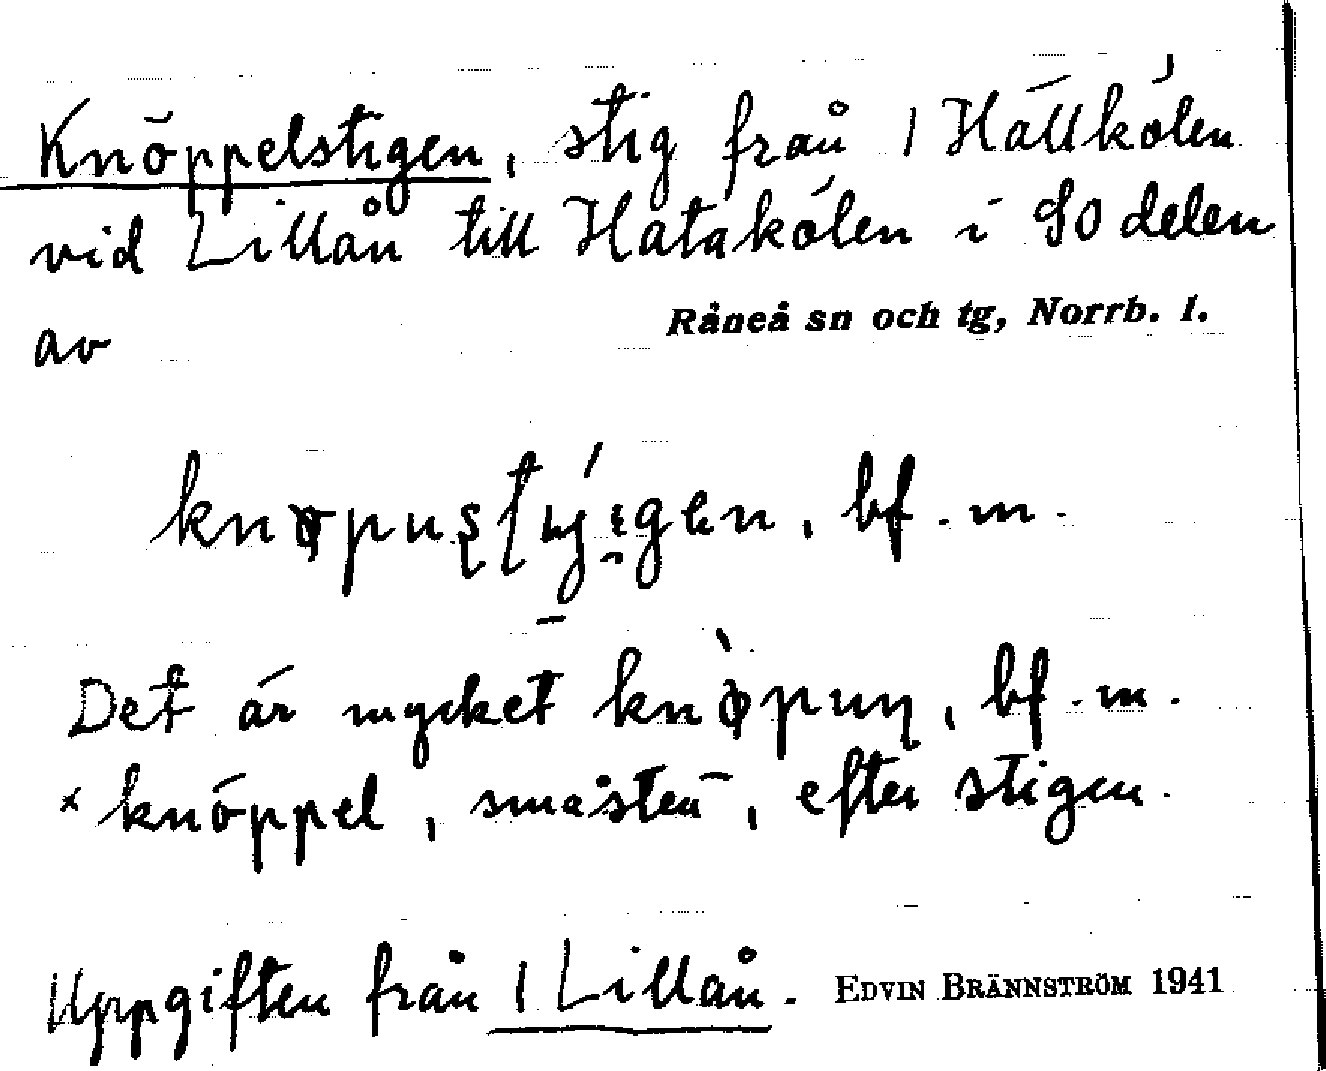 Knöppelstigen, stig från 1 Hällkölen
vid Lillån till Hatakölen i SO delen
av Råneå sn och tg, Norrb. l.
bf. m.
Det är mycket bf. m.
x knöppel, småsten, efter stigen.
Uppgiften från 1 Lillån. EDVIN BRÄNNSTRÖM 1941